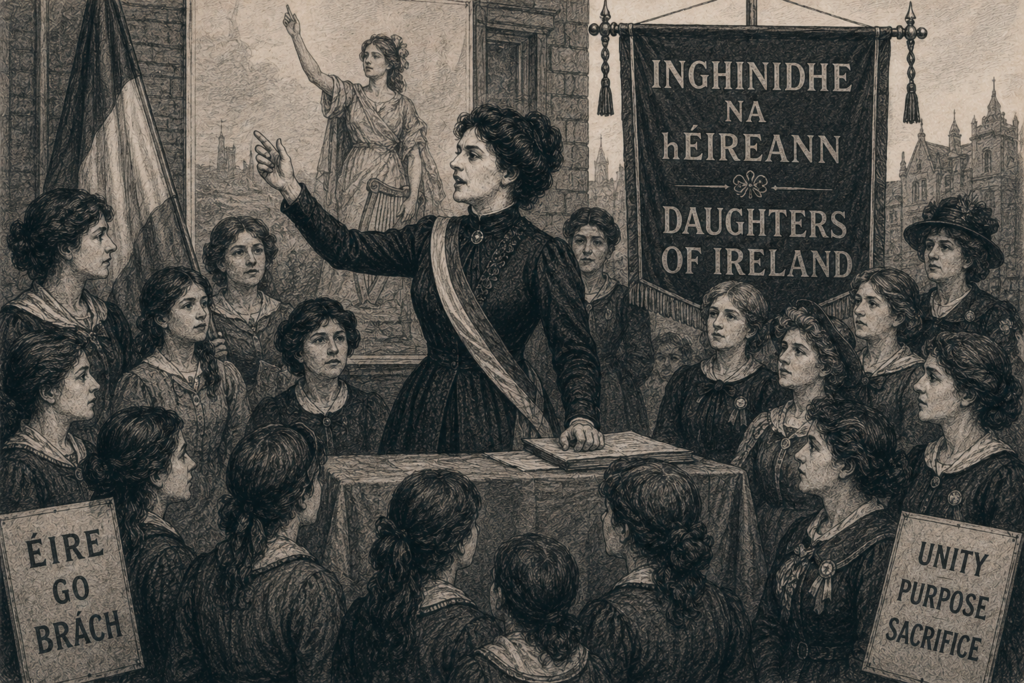 INGHINIDHE
NA
hÉIREANN
DAUGHTERS
OF IRELAND
ÉIRE
GO
BRÁCH
UNITY
PURPOSE
SACRIFICE